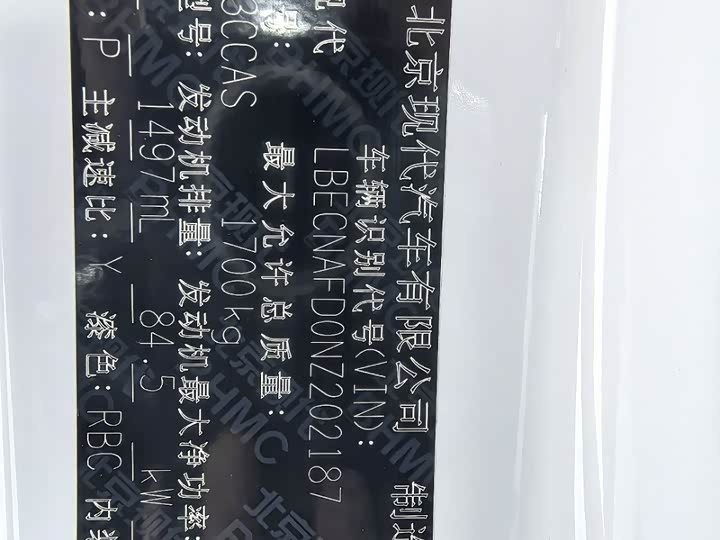 北京现代汽车有限公司 制
车辆识别代号(VIN):
现代 LBECNAFD0NZ202187
号: 最大允许总质量:
CCAS 1700kg
型号: 发动机排量: 发动机最大净功率:
1497mL 84.5 kW
: P 主减速比: Y 漆色: RBC 内